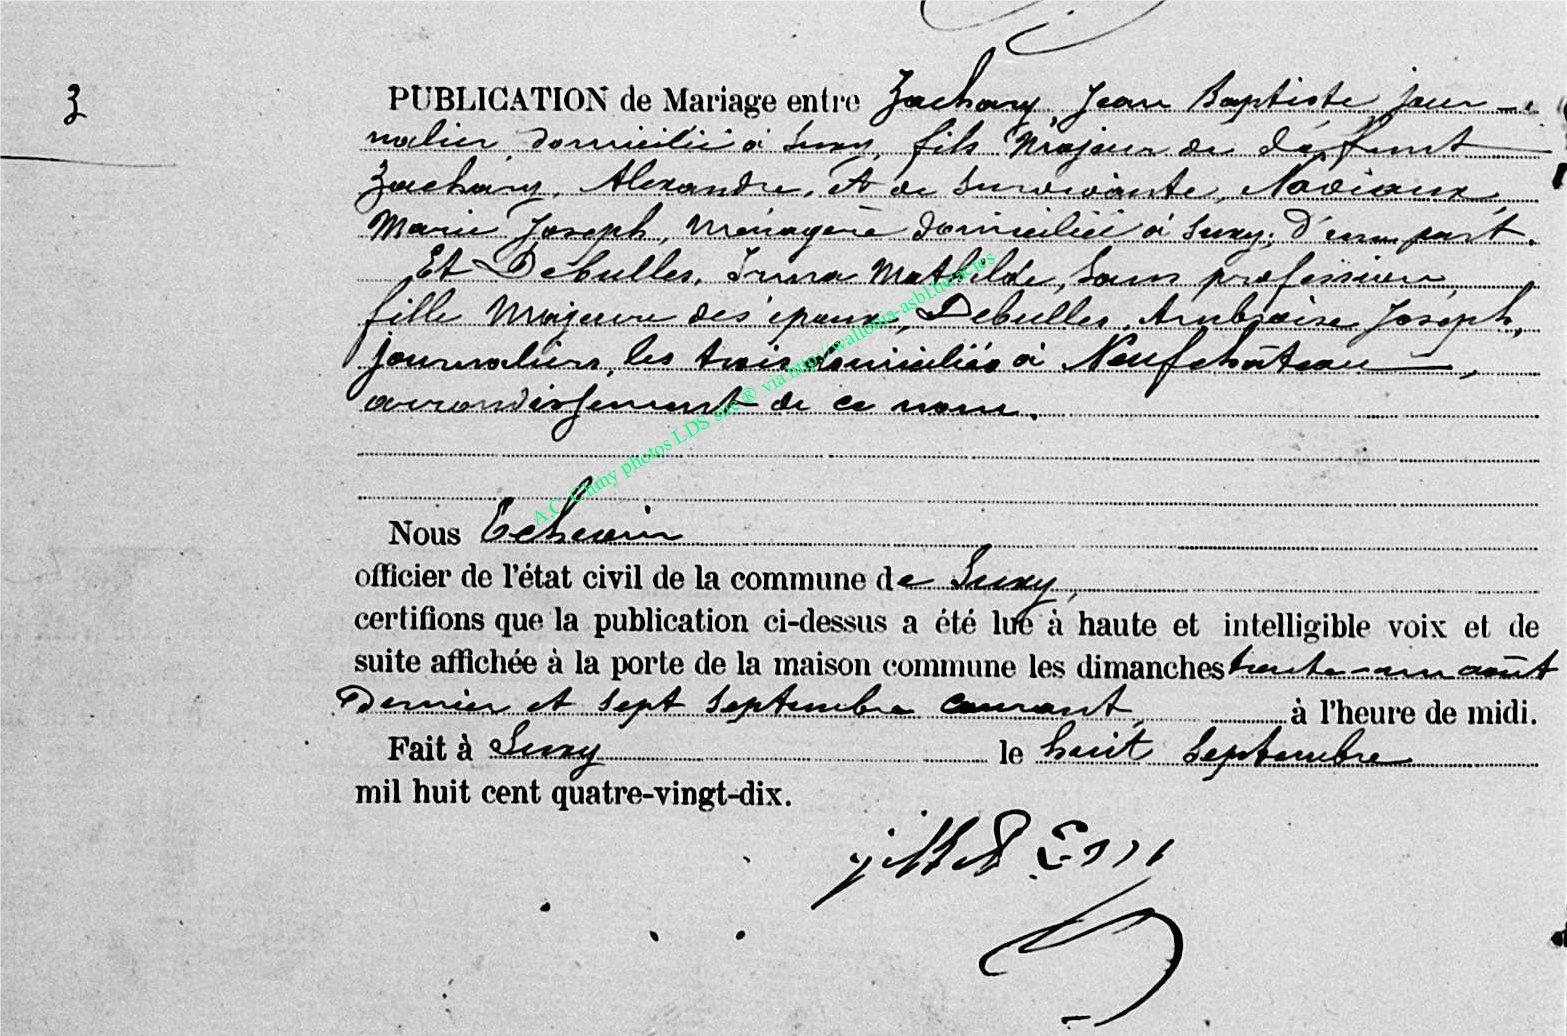 3
PUBLICATION de Mariage entre Zachary Jean Baptiste jour-
nalier, domicilié à Suxy, fils Majeur de défunt
Zachary, Alexandre, Et de Survivante, Naviaux,
Marie Joseph, ménagère domiciliée à Suxy, d'une part.
Et Debulles, Irma Mathilde, Sans profession,
fille Majeure des époux, Debulles, Ambroise Joseph,
journaliers, les trois domiciliés à Neufchâteau,
arrondissement de ce nom.
Nous Echevin
officier de l'état civil de la commune de Suxy,
certifions que la publication ci-dessus a été lue à haute et intelligible voix et de
suite affichée à la porte de la maison commune les dimanches trente-un août
Dernier et sept Septembre courant, à l'heure de midi.
Fait à Suxy le huit Septembre
mil huit cent quatre-vingt-dix.
photos LDS site ® via http://wallonia-asbl.be/actes